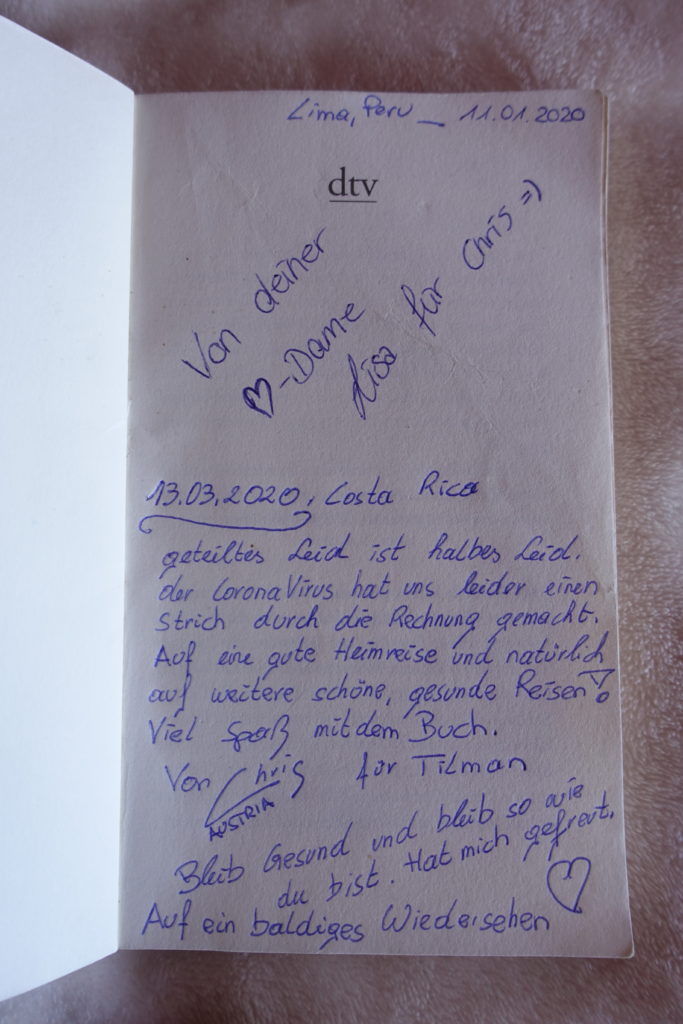 Lima, Peru _ 11.01.2020
dtv
Von deiner
♥-Dame
Lisa für Chris =)
13.03.2020, Costa Rica
geteiltes Leid ist halbes Leid.
der CoronaVirus hat uns leider einen
Strich durch die Rechnung gemacht.
Auf eine gute Heimreise und natürlich
auf weitere schöne, gesunde Reisen!
Viel Spaß mit dem Buch.
Von Chris für Tilman
AUSTRIA
Bleib Gesund und bleib so wie
du bist. Hat mich gefreut.
Auf ein baldiges Wiedersehen ♥